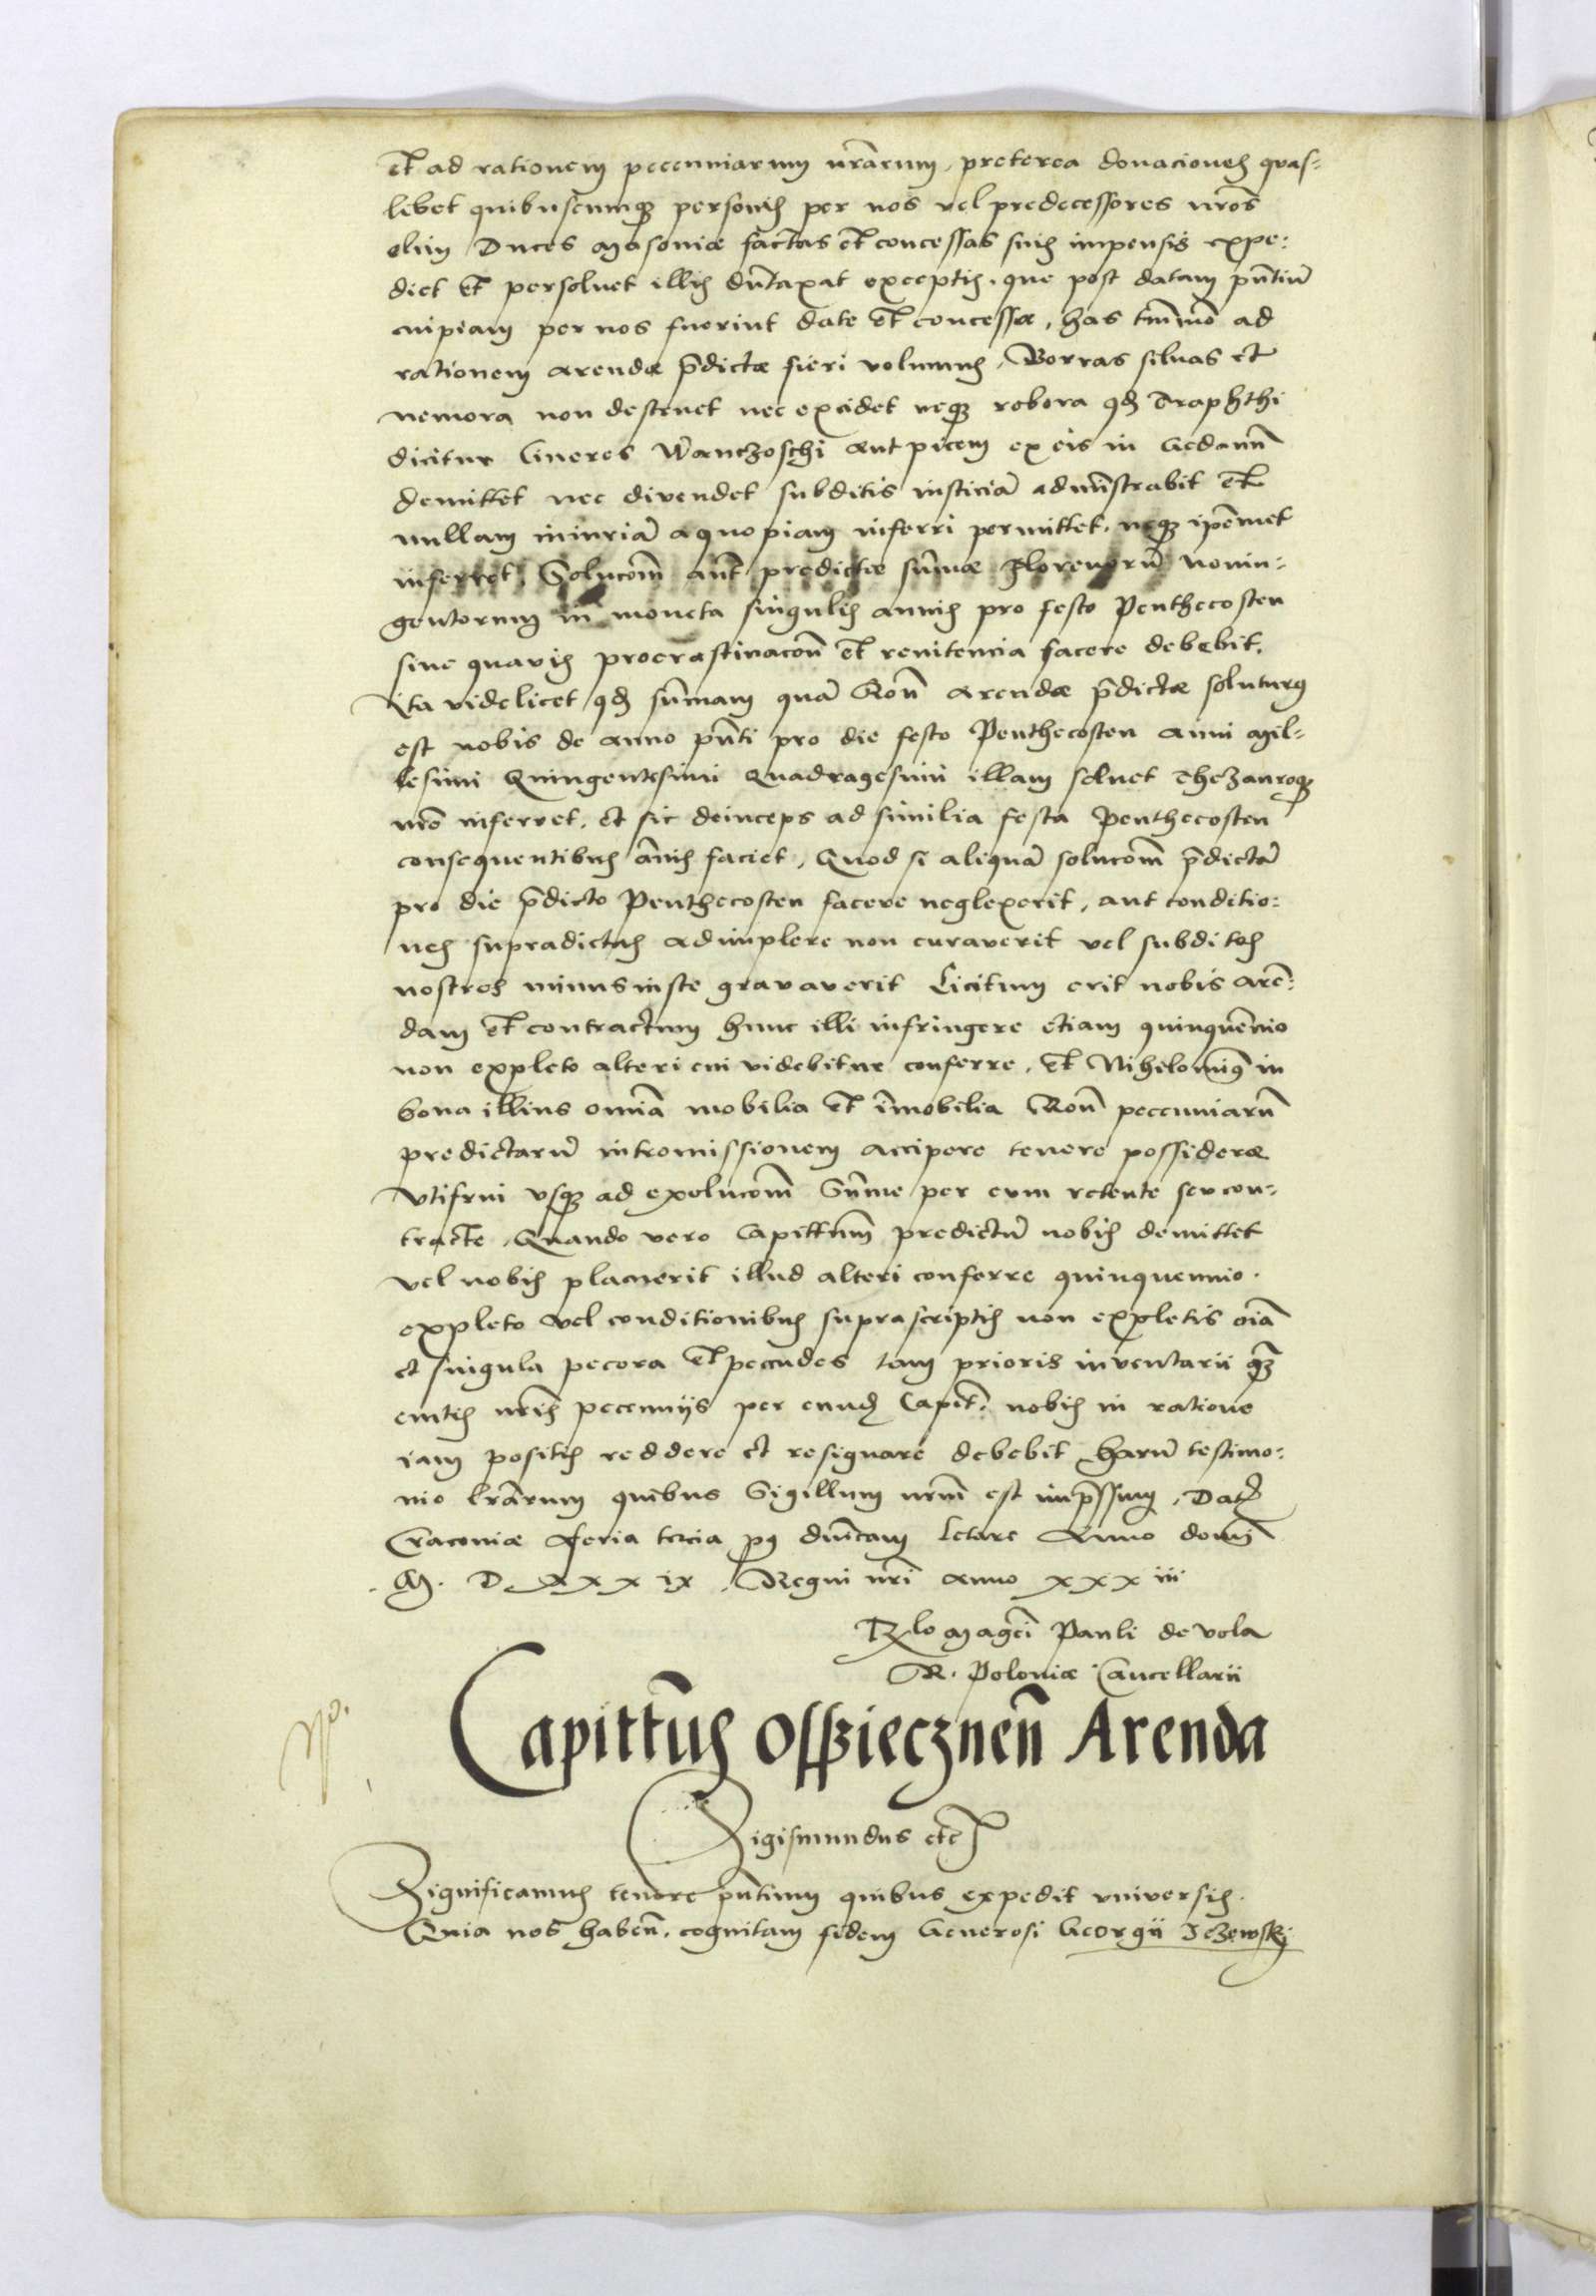 Et ad rationem pecenniarum nr̃arum, preterea donaciones quas-
libet quibuscumqꝫ personis per nos vel predecessores nr̃os
olim Duces Masoviæ factas Et concessas suis impensis expe:
diet Et persoluet illis dũtaxat exceptis, que post datam pñtiũ
cuipiam per nos fuerint date Et concessæ, has tm̃mo ad
rationem arendæ p̃dictæ fieri volumus, Borras siluas et
nemora non destruet nec excidet neqꝫ robora qđ Traphthi
dicitur Cineres Wanczoschi aut picem ex eis in Gedanũ
demittet nec divendet subditis iusticiã administrabit Et
nullam iniuriã a quopiam inferri permittet, neqꝫ ip̃emet
inferret, Solucom̃ aũt predictæ sum̃æ Florenorũ nonin-
gentorum in moneta singulis annis pro festo Penthecosten
sine quavis procrastinacoñ Et renitencia facere debebit,
Ita videlicet qđ sum̃am quã Roñ arendæ p̃dictæ soluturus
est nobis de anno pñti pro die festo Penthecosten anni Mil-
lesimi Quingentesimi Quadragesimi illam soluet Thezauroqꝫ
nr̃o inferret, et sic deinceps ad similia festa Penthecosten
consequentibus añis faciet, Quod si aliquã solucom̃ p̃dictã
pro die p̃dicto Penthecosten facere neglexerit, aut conditio:
nes supradictas adimplere non curaverit vel subditos
nostros minus iuste gravaverit Licitum erit nobis arẽ:
dam Et contractum hunc illi infringere etiam quinquẽnio
non expleto alteri cui videbitur conferre, Et Nihilominꝰ in
bona illius omĩa mobilia Et im̃obilia Roñ pecenniarũ
predictarũ intromissionem accipere tenere possideræ
Utifrui usqꝫ ad exolucom̃ Sum̃me per eum retente seu con-
tracte, Quando vero Capitt̃um predictũ nobis demittet
vel nobis placuerit illud alteri conferre quinquennio.
expleto vel conditionibus suprascriptis non expletis oĩa
et singula pecora Et pecudes tam prioris inventarii qꝫ̃
emtis nr̃is pecenniis per eundẽ Capit̃: nobis in ratione
iam positis reddere et resignare debebit harũ testimo:
nio lr̃arum quibus Sigillum nrm̃ est imp̃ssum, Datꝫ
Cracoviæ feria tercia pꝰ dñicam Letare Anno domĩ
.M. D. XXXIX, Regni nr̃i anno XXXiii
Rlo Magc̃i Pauli de vola
R. Poloniæ Cancellarii
No.
Capitt̃us Osspieczneñ Arenda
Sigismundus etc
Significamus tenore pñtium quibus expedit vniversis.
Quia nos habeñ. cognitam fidem Generosi Georgii Jezewskj